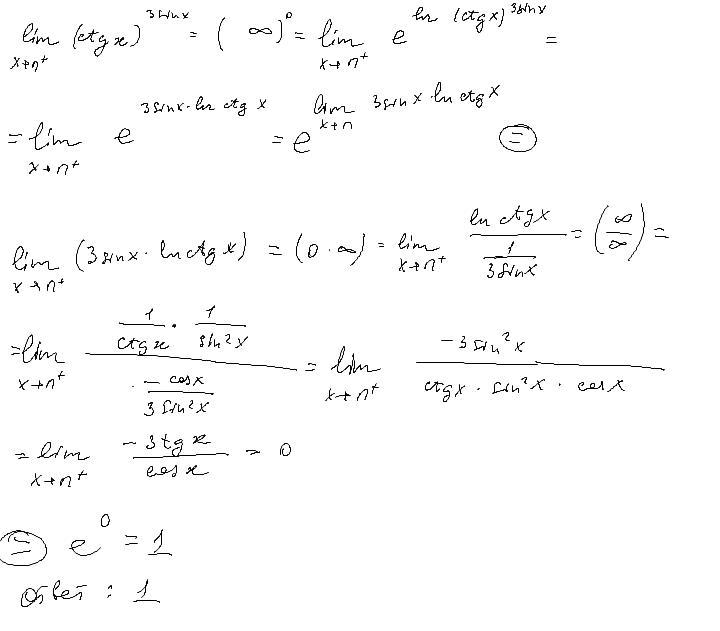 lim x→π⁺ (ctg x)^(3 sin x) = (∞)⁰ = lim x→π⁺ e^(ln (ctg x)^(3 sin x)) =
= lim x→π⁺ e^(3 sin x · ln ctg x) = e^(lim x→π 3 sin x · ln ctg x) ⊜
lim x→π⁺ (3 sin x · ln ctg x) = (0 · ∞) = lim x→π⁺ (ln ctg x)/(1/(3 sin x)) = (∞/∞) =
= lim x→π⁺ (1/(ctg x) · 1/(sin² x))/(· (− cos x)/(3 sin² x)) = lim x→π⁺ (−3 sin² x)/(ctg x · sin² x · cos x)
= lim x→π⁺ (−3 tg x)/(cos x) = 0
⊜ e⁰ = 1
ответ : 1